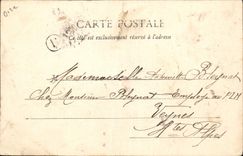 CARTE POSTALE
Ce côté est exclusivement réservé à l'adresse
Mademoiselle
Chez Monsieur Employé au PLM
Veynes
Htes Alpes